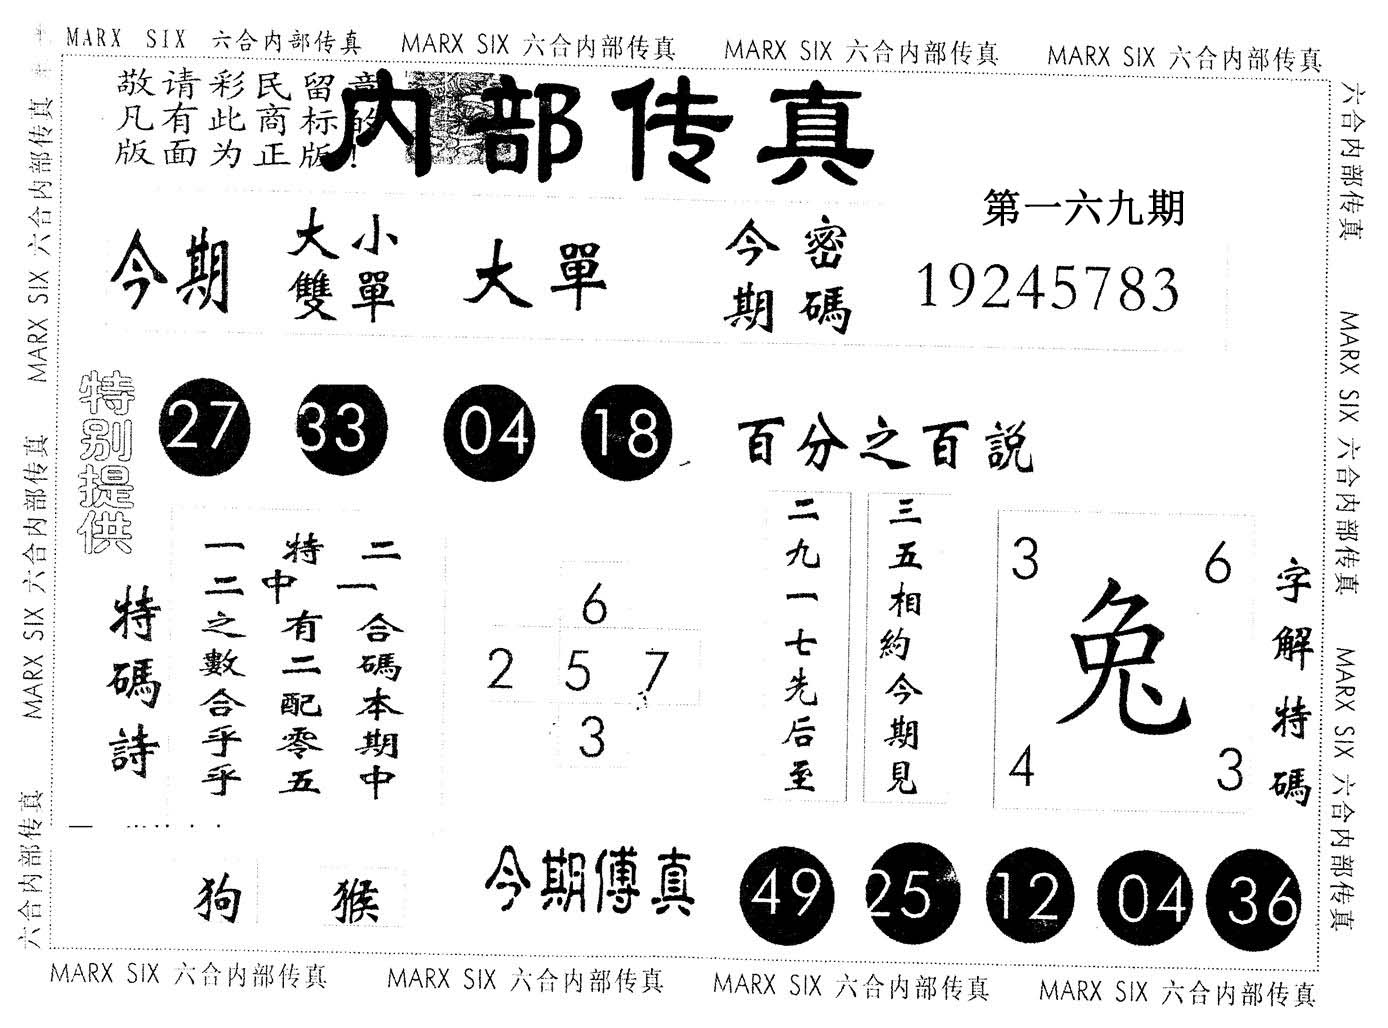 MARX SIX 六合内部传真 MARX SIX 六合内部传真 MARX SIX 六合内部传真 MARX SIX 六合内部传真
敬请彩民留意
凡有此商标的
版面为正版！
内部传真
第一六九期
今期
大小
雙單
大單
今期
密碼
19245783
特别提供
27 33 04 18
百分之百説
特碼詩
一二之數合乎乎
特中有二配零五
二一合碼本期中
6
2 5 7
3
二九一七先后至
三五相約今期見
3 6
兔
4 3
字解特碼
狗 猴
今期傅真
49 25 12 04 36
六合内部传真 MARX SIX 六合内部传真 MARX SIX 六合内部传真
六合内部传真 MARX SIX 六合内部传真 MARX SIX 六合内部传真
MARX SIX 六合内部传真 MARX SIX 六合内部传真 MARX SIX 六合内部传真 MARX SIX 六合内部传真